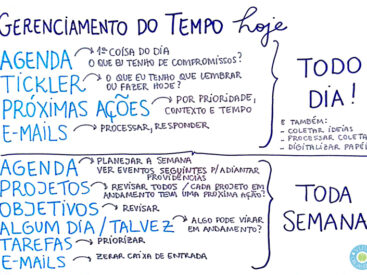 GERENCIAMENTO DO TEMPO hoje
AGENDA → 1ª COISA DO DIA
O QUE EU TENHO DE COMPROMISSOS?
TICKLER → O QUE EU TENHO QUE LEMBRAR
OU FAZER HOJE?
PRÓXIMAS AÇÕES → POR PRIORIDADE,
CONTEXTO E TEMPO
E-MAILS → PROCESSAR, RESPONDER
TODO
DIA!
E TAMBÉM:
- COLETAR IDEIAS
- PROCESSAR COLETA
- DIGITALIZAR PAPÉI
AGENDA → PLANEJAR A SEMANA
VER EVENTOS SEGUINTES P/ ADIANTAR
PROVIDÊNCIAS
PROJETOS → REVISAR TODOS / CADA PROJETO EM
ANDAMENTO TEM UMA PRÓXIMA AÇÃO?
OBJETIVOS → REVISAR
ALGUM DIA / TALVEZ → ALGO PODE VIRAR
EM ANDAMENTO?
TAREFAS → PRIORIZAR
E-MAILS → ZERAR CAIXA DE ENTRADA
TODA
SEMANA